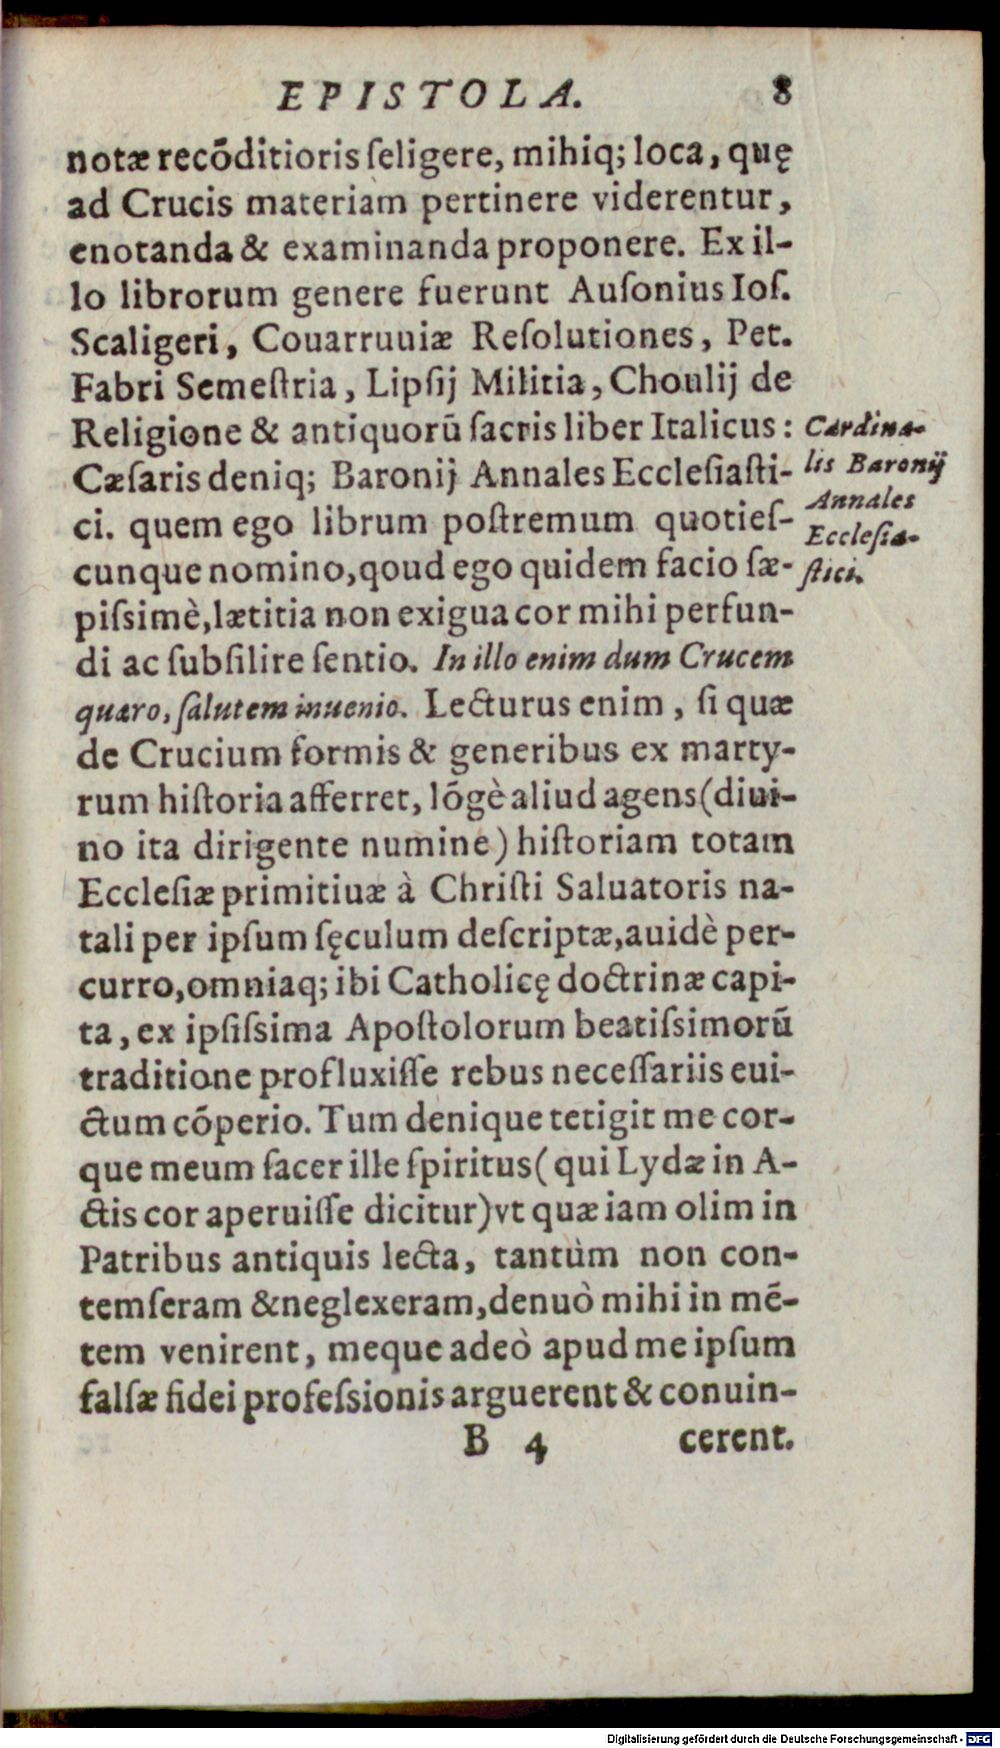 EPISTOLA. 8
notæ recõditioris ſeligere, mihiq; loca, quę
ad Crucis materiàm pertinere viderentur,
enotanda & examinanda proponere. Ex il-
lo librorum genere fuerunt Auſonius Ioſ.
Scaligeri, Couarruuiæ Reſolutiones, Pet.
Fabri Semeſtria, Lipſij Militia, Choulij de
Religione & antiquorũ ſacris liber Italicus:
Cæſaris deniq; Baronij Annales Eccleſiaſti-
ci. quem ego librum poſtremum quotieſ-
cunque nomino, qoud ego quidem facio ſæ-
piſsimè, lætitia non exigua cor mihi perfun-
di ac ſubſilire ſentio. In illo enim dum Crucem
quæro, ſalutem inuenio. Lecturus enim, ſi quæ
de Crucium formis & generibus ex marty-
rum hiſtoria afferret, lõgè aliud agens (diui-
no ita dirigente numine) hiſtoriam totam
Eccleſiæ primitiuæ à Chriſti Saluatoris na-
tali per ipſum ſęculum deſcriptæ, auidè per-
curro, omniaq; ibi Catholicę doctrinæ capi-
ta, ex ipſiſsima Apoſtolorum beatiſsimorũ
traditione profluxiſſe rebus neceſſariis eui-
ctum cõperio. Tum denique tetigit me cor-
que meum ſacer ille ſpiritus (qui Lydæ in A-
ctis cor aperuiſſe dicitur) vt quæ iam olim in
Patribus antiquis lecta, tantùm non con-
temſeram & neglexeram, denuò mihi in mẽ-
tem venirent, meque adeò apud me ipſum
falſæ fidei profeſsionis arguerent & conuin-
B 4 cerent.
Cardina-
lis Baronij
Annales
Eccleſia-
ſtici.
Digitalisierung gefördert durch die Deutsche Forschungsgemeinschaft - DFG